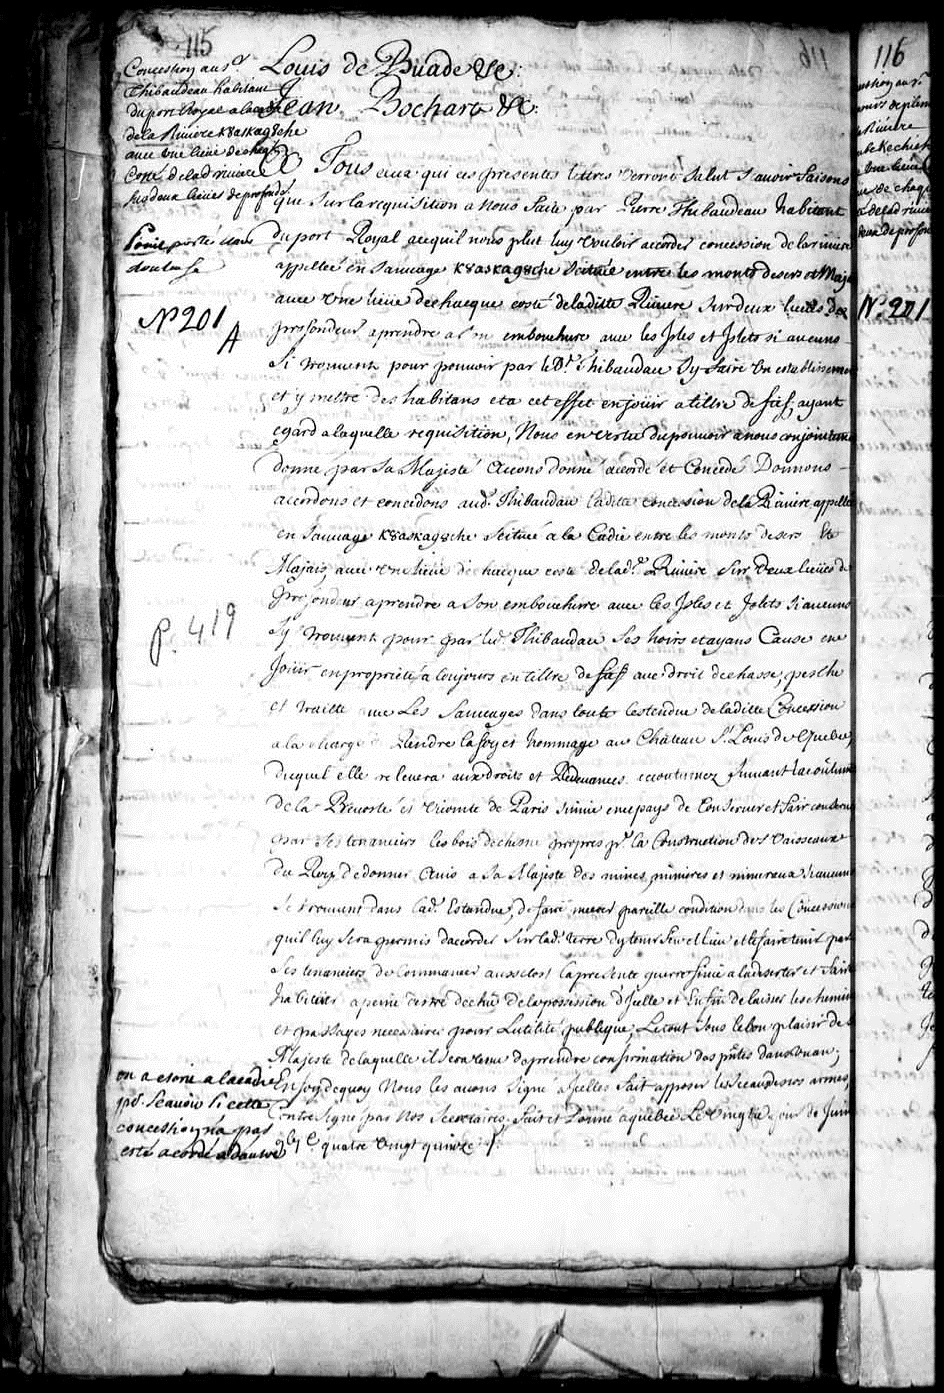 115
Louis de Buade &c.
Jean Bochart &c.
Concession au Sr
Thibaudeau habitant
du port Royal a lacadie
de la Riuiere k8askag8che
auec une lieüe de chaque
Costé de lad riuiere
sur deux lieües de profondr
N° 201
A
P. 419
A Tous ceux qui ces presentes lettres verront salut sauoir faisons
que sur la requisition a nous faite par Pierre Thibaudeau habitant
du port Royal acequil nous plut luy vouloir accorder concession de la riuiere
appellée en sauuage k8askag8che scitüée entre les monts deserts et Majais
auec une lieüe de chacque costé de laditte Riuiere sur deux lieües de
profondeur a prendre a son embouchure auec les Isles et Islets si aucuns
si trouuent pour pouuoir par led. Sr Thibaudeau sy faire un establissement
et y mettre des habitans et a cet effet en joüir a tiltre de fief, ayant
egard a laquelle requisition, Nous en vertu du pouuoir a nous conjointement
donné par sa Majesté Auons donné accordé et Concedé Donnons
accordons et concedons aud. Thibaudeau laditte concession de la Riuiere appellée
en sauuage k8askag8che scitüée a la Cadie entre les monts deserts et
Majais, auec une lieüe de chacque costé de lad. Riuiere sur deux lieües de
profondeur a prendre a son embouchure auec les Isles et Islets si aucuns
s'y trouuent pour par led. Thibaudeau ses hoirs et ayans Cause en
joüir en proprieté a toujours en tiltre de fief auec droit de chasse, pesche
et traitte auec Les Sauuages dans toutte lestendüe de laditte Concession
a la charge de Rendre la foy et hommage au Château St. Louis de Quebec,
duquel elle releuera aux droits et Redeuances accoutumez suiuant la coûtume
de la Preuosté et Vicomté de Paris suiuie en ce pays de Conseruer et faire conseruer
par ses tenanciers les bois de chesne propres pr. la Construction des Vaisseaux
du Roy, de donner Auis a sa Majesté des mines, minieres et mineraux si aucuns
se trouuent dans lad. Estendüe, de faire mettre pareille condition dans les Concessions
quil luy sera permis daccorder sur lad. terre dy tenir feu et Lieu et le faire tenir par
ses tenanciers de Commancer aussitost la presente guerre finie a la deserter et faire
habiter a peine destre dechû de la possession d'Icelle et Enfin de laisser les chemins
et passages necessaires pour Lutilité publique, Le tout sous le bon plaisir de sa
Majesté de laquelle il sera tenu de prendre confirmation des pñtes dans un an;
En foy de quoy Nous les auons signé a Icelles fait apposer les sceaux de nos armes,
Contresigné par nos Secretaires, fait et Donné a quebec Le Vingtie jour de Juin
gbjc quatre vingt quinze
on a escrit a lacadie
pr. Scauoir si cette
concession na pas
esté acordé a dautre
116
N° 201